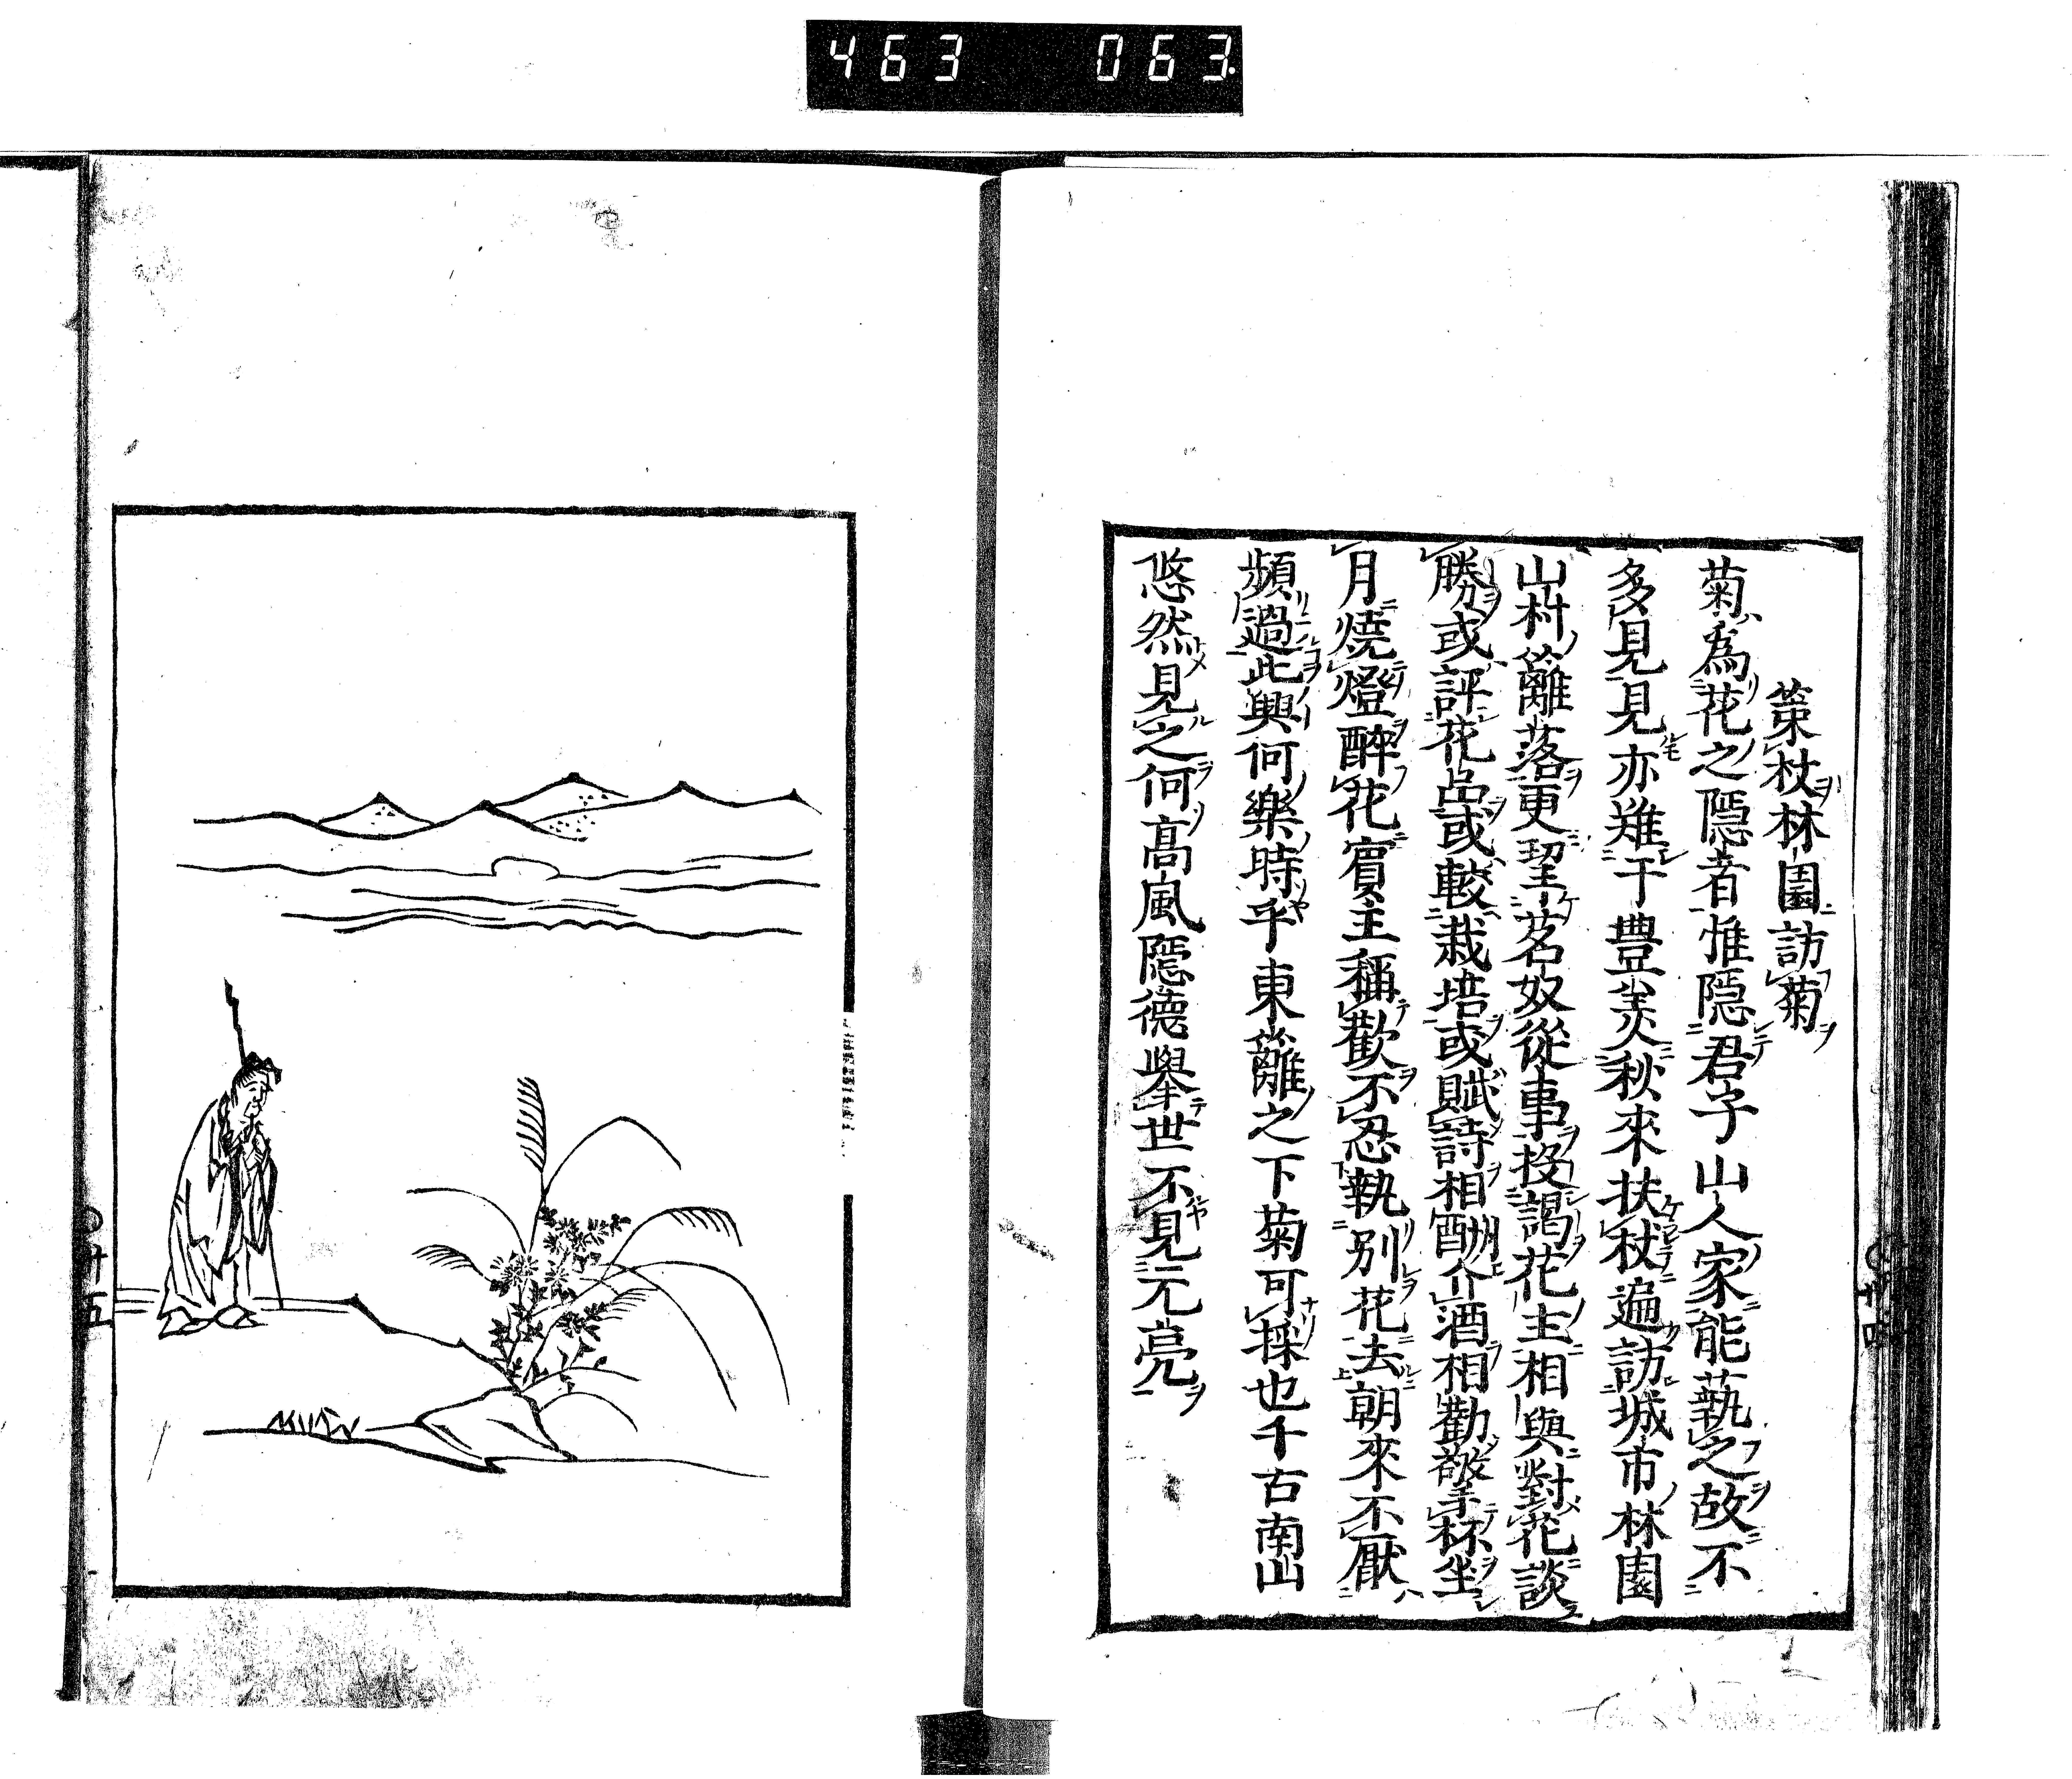 463 063
策杖林園訪菊
菊爲花之隱者惟隱君子山人家能藝之故不
多見見亦難于豐美秋來扶杖遍訪城市林園
山村籬落更挈茗奴從事投謁花主相與對花談
勝或評花品或較栽培或賦詩相酬介酒相勸擎杯坐
月燒燈醉花賓主稱歡不忍執別花去朝來不厭
頻過此興何樂時乎東籬之下菊可採也千古南山
悠然見之何高風隱德舉世不見元亮
○廿五